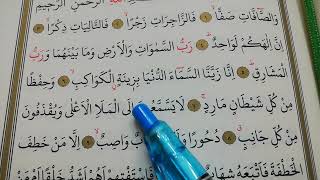 الرحمن الرحيم
وَالصَّافَّاتِ صَفًّا ١ فَالزَّاجِرَاتِ زَجْرًا ٢ فَالتَّالِيَاتِ ذِكْرًا ٣
إِنَّ إِلَهَكُمْ لَوَاحِدٌ ٤ رَبُّ السَّمٰوَاتِ وَالْأَرْضِ وَمَا بَيْنَهُمَا وَرَبُّ
الْمَشَارِقِ ٥ إِنَّا زَيَّنَّا السَّمَاءَ الدُّنْيَا بِزِينَةٍ الْكَوَاكِبِ ٦ وَحِفْظًا
مِنْ كُلِّ شَيْطَانٍ مَارِدٍ ٧ لَا يَسَّمَّعُونَ إِلَى الْمَلَإِ الْأَعْلَى وَيُقْذَفُونَ
مِنْ كُلِّ جَانِبٍ ٨ دُحُورًا وَاصِبٌ ٩ إِلَّا مَنْ خَطِفَ
الْخَطْفَةَ فَأَتْبَعَهُ شِهَابٌ فَاسْتَفْتِهِمْ أَهُمْ أَشَدُّ خَلْقًا أَمْ